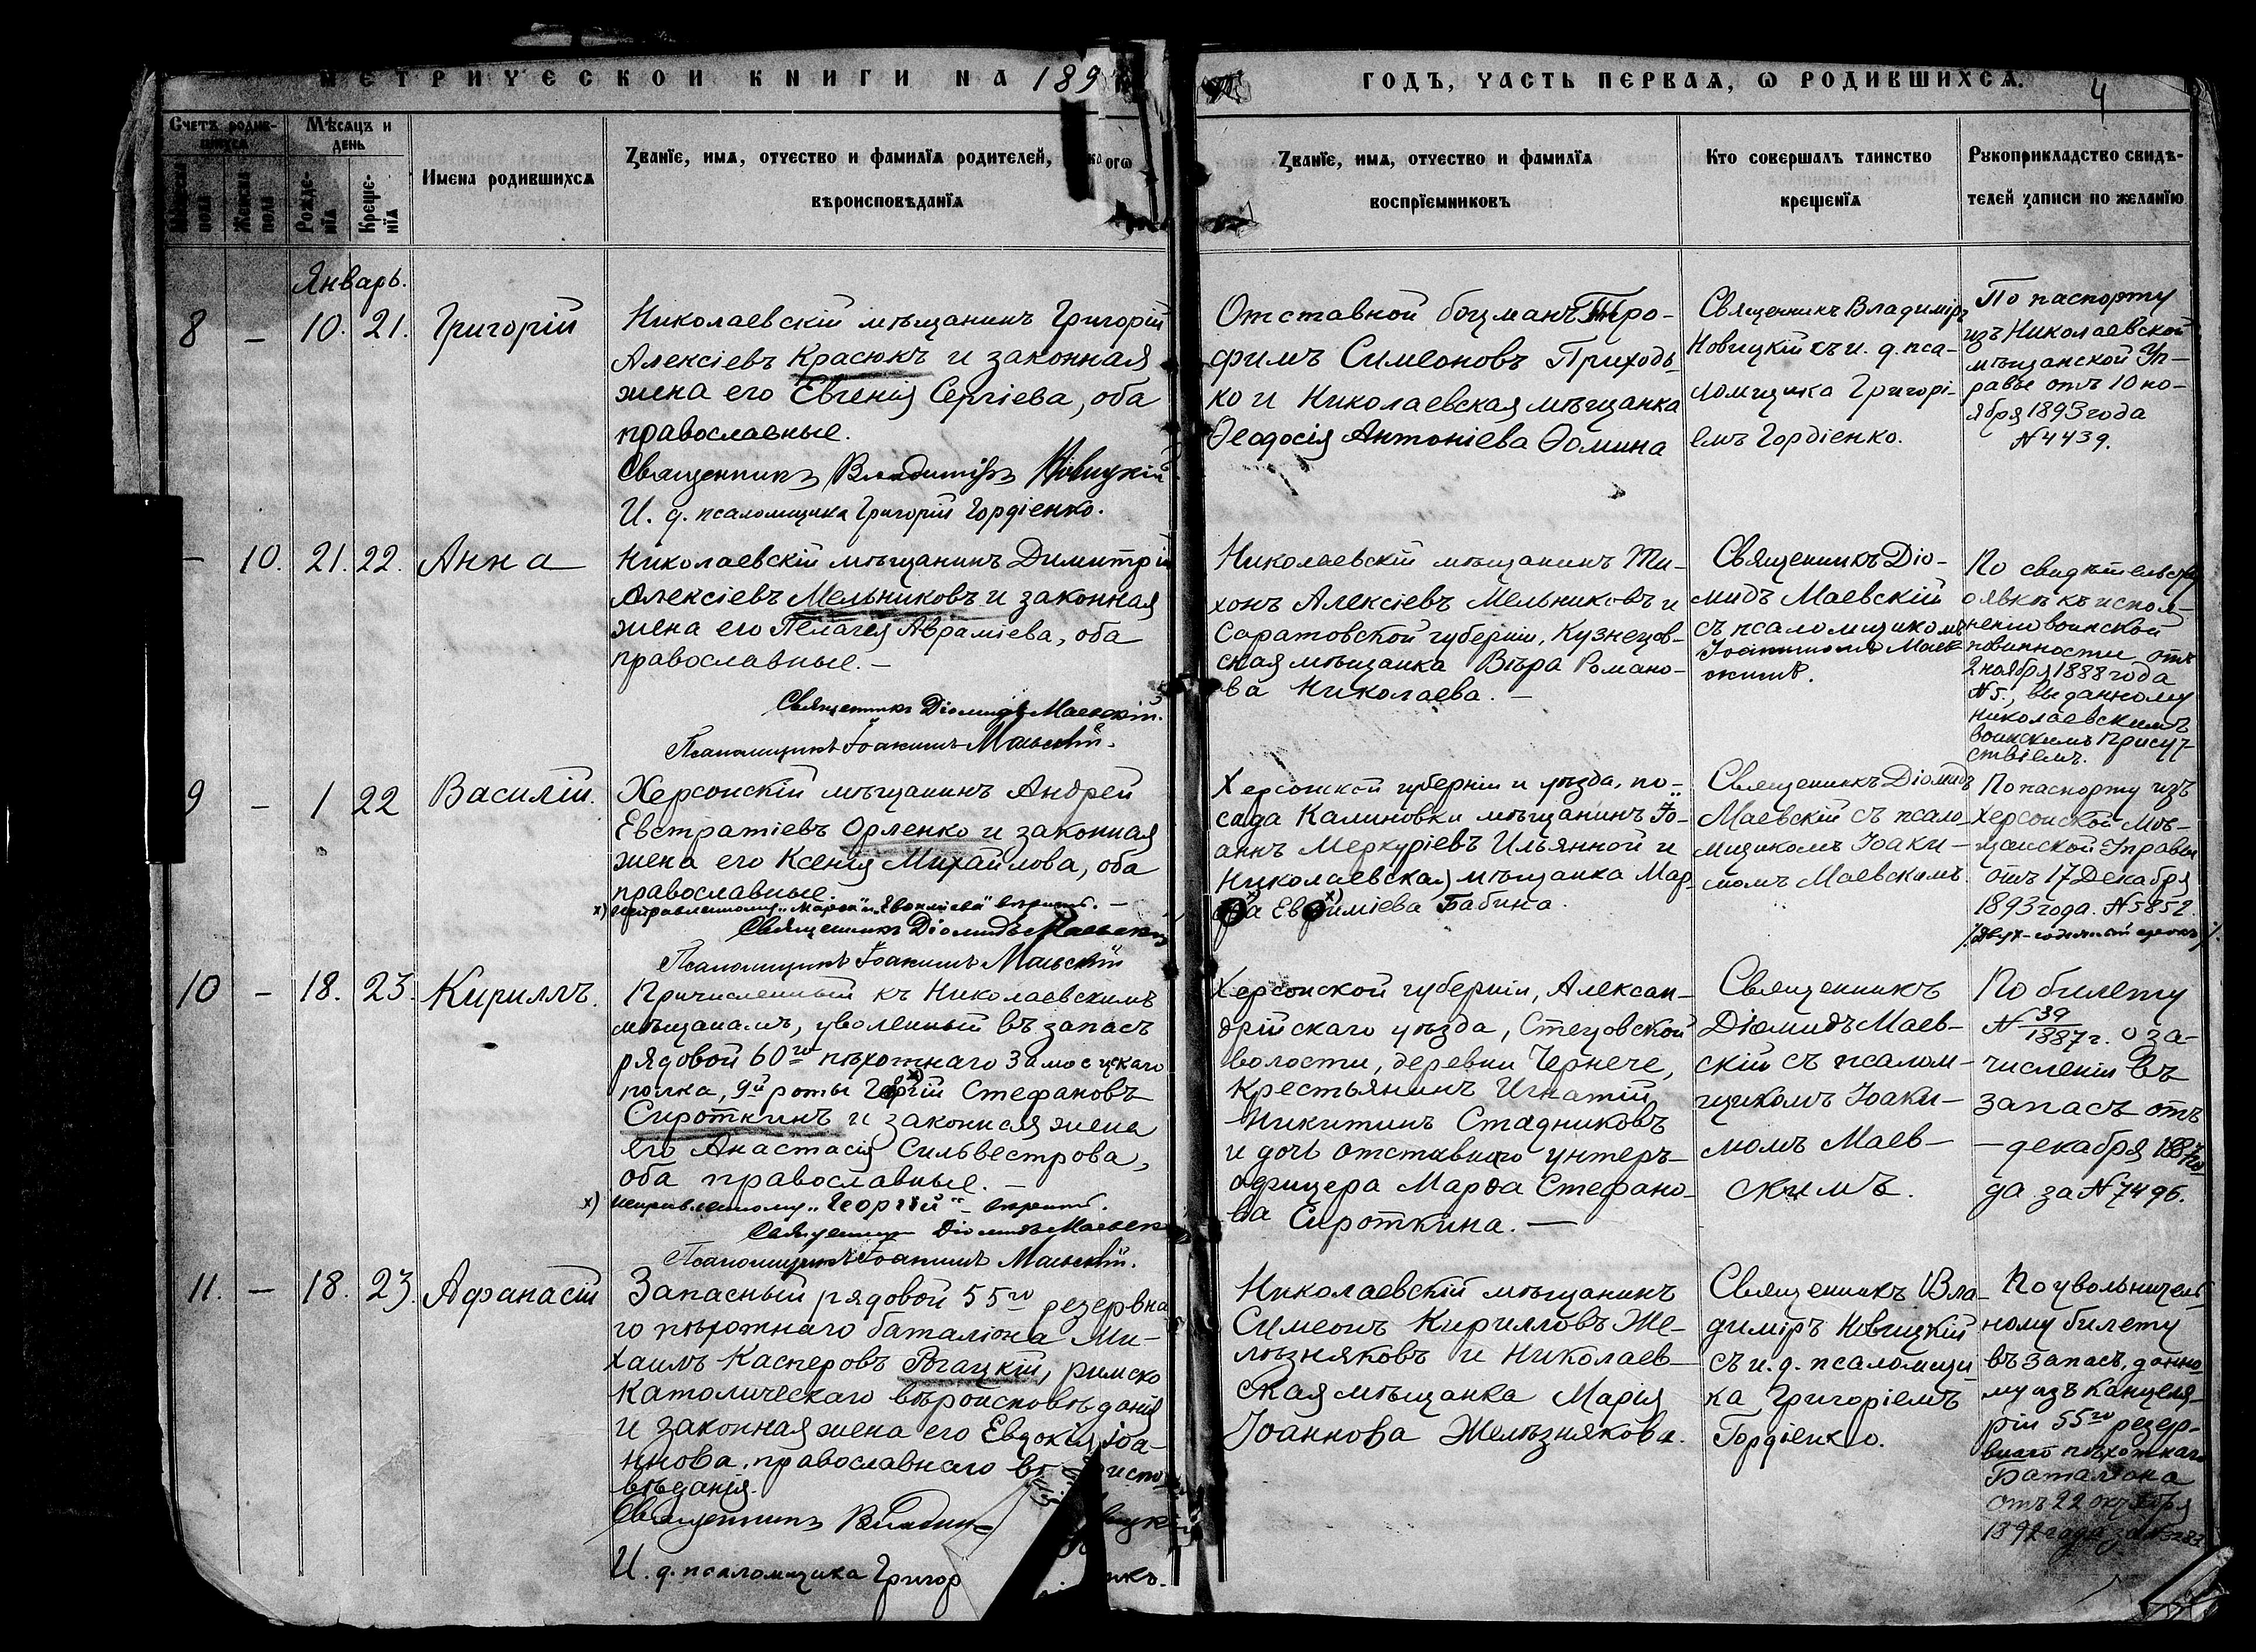 МЕТРИЧЕСКОЙ КНИГИ НА 189
ГОДЪ, ЧАСТЬ ПЕРВАѦ, Ѡ РОДИВШИХСѦ.
4
Счетъ родив-
шихсѧ
Мѣсѧцъ и
день
Мужеска
пола
Женска
пола
Рожде-
нїѧ
Креще-
нїѧ
Имена родившихсѧ
Званїе, имѧ, отчество и фамилїѧ родителей,
огѡ
вѣроисповѣданїѧ
Званїе, имѧ, отчество и фамилїѧ
воспрїемниковъ
Кто совершалъ таинство
крещенїѧ
Рукоприкладство свидѣ-
телей записи по желанїю
Январь.
8 – 10. 21. Григорій
Николаевскій мѣщанинъ Григорій
Алексіевъ Красюкъ и законная
жена его Евгенія Сергіева, оба
православные.
Священникъ Владиміръ Новицкій
И. д. псаломщика Григорій Гордіенко.
Отставной боцманъ Тро-
фимъ Симеоновъ Приходь-
ко и Николаевская мѣщанка
Ѳеодосія Антоніева Ѳомина
Священникъ Владиміръ
Новицкій съ и. д. пса-
ломщика Григорі-
емъ Гордіенко.
По паспорту
изъ Николаевской
мѣщанской Уп-
равы отъ 10 но-
ября 1893 года
№ 4439.
– 10. 21. 22. Анна
Николаевскій мѣщанинъ Димитрій
Алексіевъ Мельниковъ и законная
жена его Пелагея Авраміева, оба
православные. –
Священникъ Діомидъ Маевскій.
Псаломщикъ Іоакимъ Маевскій.
Николаевскій мѣщанинъ Ти-
хонъ Алексіевъ Мельниковъ и
Саратовской губерніи, Кузнецов-
ская мѣщанка Вѣра Романо-
ва Николаева. –
Священникъ Діо-
мидъ Маевскій
съ псаломщикомъ
Іоакимомъ Маев-
скимъ.
По свидѣтельству
о явкѣ къ испол-
ненію воинской
повинности отъ
2 ноября 1888 года
№ 5, выданному
Николаевскимъ
воинскимъ Присут-
ствіемъ.
9 – 1 22 Василій.
Херсонскій мѣщанинъ Андрей
Евстратіевъ Орленко и законная
жена его Ксенія Михайлова, оба
православные.
х) исправленному „Марѳа" и „Евѳиміева" вѣрить. –
Священникъ Діомидъ Маевскій
Псаломщикъ Іоакимъ Маевскій
Херсонской губерніи и уѣзда, по-
сада Калиновки мѣщанинъ Іо-
аннъ Меркуріевъ Ильянной и
Николаевская мѣщанка Мар-
ѳа Евѳиміева Бабина.
Священникъ Діомидъ
Маевскій съ псало-
мщикомъ Іоаки-
момъ Маевскимъ.
По паспорту изъ
Херсонской Мѣ-
щанской Управы
отъ 17 Декабря
1893 года. № 5852.
10 – 18. 23. Кириллъ.
Причисленный къ Николаевскимъ
мѣщанамъ, уволенный въ запасъ
рядовой 60го пѣхотнаго Замосцскаго
полка, 9й роты Георгій Стефановъ
Сироткинъ и законная жена
его Анастасія Сильвестрова,
оба православные. –
х) исправленному „Георгій" – вѣрить.
Священникъ Діомидъ Маевск
Псаломщикъ Іоакимъ Маевскій.
Херсонской губерніи, Алексан-
дрійскаго уѣзда, Стецовской
волости, деревни Чернече,
крестьянинъ Игнатій
Никитинъ Стадниковъ
и дочь отставнаго унтеръ-
офицера Марѳа Стефано-
ва Сироткина. –
Священникъ
Діомидъ Маев-
скій съ псалом-
щикомъ Іоаки-
момъ Маев-
скимъ.
По билету
№ 39/1887 г. о за-
численіи въ
запасъ отъ
– декабря 1887 го-
да за № 7496.
11. – 18. 23. Афанасій
Запасный рядовой 55го резервна
го пѣхотнаго баталіона Ми-
хаилъ Касперовъ Рогацкій, римско
католическаго вѣроисповѣданія
и законная жена его Евдокія Іоа-
ннова, православнаго
вѣданія.
Священникъ Владим
И. д. псаломщика Григор
Николаевскій мѣщанинъ
Симеонъ Кирилловъ Же-
лѣзняковъ и Николаев-
ская мѣщанка Марія
Іоаннова Желѣзнякова.
Священникъ Вла-
димиръ Новицкій
съ и. д. псаломщи-
ка Григоріемъ
Гордіенко.
По увольнитель-
ному билету
въ запасъ, данно-
му изъ канцеля-
ріи 55го резер-
внаго пѣхотнаго
Баталіона
отъ 22 октября
1892 года за №